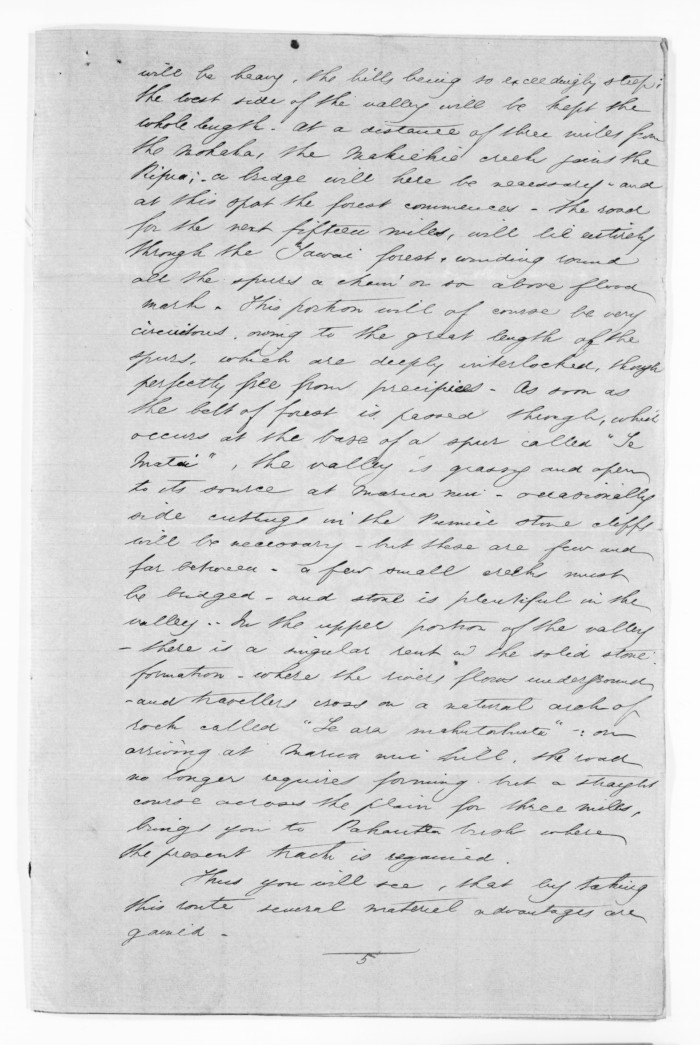 will be heavy, the hills being so exceedingly steep;
the west side of the valley will be kept the
whole length. At a distance of three miles from
the Mohaka, the Makiekie creek joins the
Ripia; - a bridge will here be necessary - and
at this spot the forest commences - the road
for the next fifteen miles, will lie entirely
through the Tawai forest, winding round
all the spurs a chain or so above flood
mark. This portion will of course be very
circuitous, owing to the great length of the
spurs, which are deeply interlocked, though
perfectly free from precipices - As soon as
the belt of forest is passed through, which
occurs at the base of a spur called "Te
Matai", the valley is grassy and open
to its source at Marua nui - occasionally
side cuttings in the Pumice stone cliffs
will be necessary - but these are few and
far between - a few small creeks must
be bridged - and stone is plentiful in the
valley. - In the upper portion of the valley
- there is a singular rent in the solid stone
formation - where the river flows underground
- and travellers cross on a natural arch of
rock called "Te ara mahutahuta" -: on
arriving at Marua nui hill, the road
no longer requires forming but a straight
course across the plain for three miles,
brings you to Pahautea bush where
the present track is regained.
Thus you will see, that by taking
this route several material advantages are
gained -
5